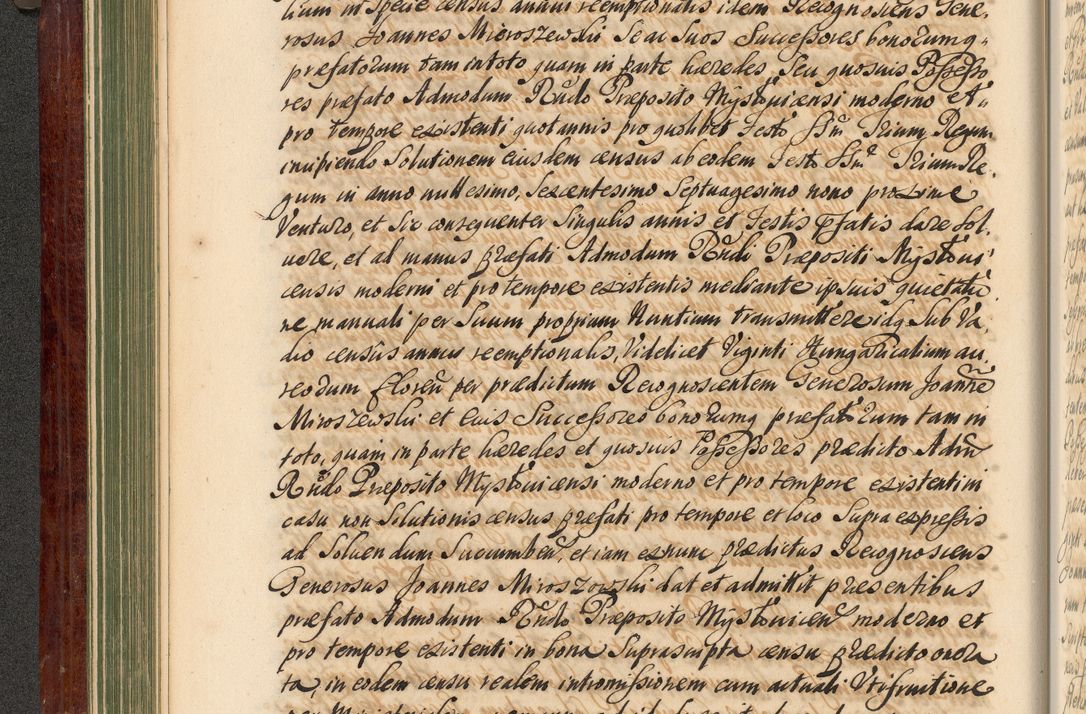 lium in Specie census annui reemptionalis idem Recognoscens Gene,
rosus Joannes Mieroszewski Se ac Suos Successores bonorumq,
præfatorum tam in toto quam in parte hæredes, Seu quosuis Possesso
res præfato Admodum Rndo Præposito Mysłouicensi moderno et
pro tempore existenti quotannis pro quolibet Festo SSm Trium Regum
incipiendo Solutionem eiusdem census ab eodem Festo SSm Trium Re,
gum in anno millesimo, Sexcentesimo Septuagesimo nono proxime
Venturo, et Sic consequenter Singulis annis et Festis pfatis dare Sol,
uere, et ad manus præfati Admodum Rndi Præpositi Mysłoui,
censis moderni et pro tempore existentis mediante ipsius quietatio
ne, manuali per Suum proprium Nuntium transmittere idq Sub Va,
dio census annui reemptionalis, Videlicet Viginti Hungaricalium au,
reorum floren per prædictum Recognoscentem Generosum Joannē
Miroszewski et Eius Successores bonorumq præfatorum tam in
toto, quam in parte hæredes et quosuis Possessores prædicto Adm
Rndo Præposito Mysłouicensi moderno et pro tempore existenti in
casu non Solutionis census præfati pro tempore et loco Supra expressis
ad Soluendum Succumben, et iam ex nunc prædictus Recognoscens
Generosus Joannes Miroszowski dat et admittit præsentibus
præfato Admodum Rndo Præposito Mysłouicen moderno et
pro tempore existenti in bona Suprascripta censu prædicto onera
ta, in eodem censu realem intromissionem cum actuali Vsufruitione